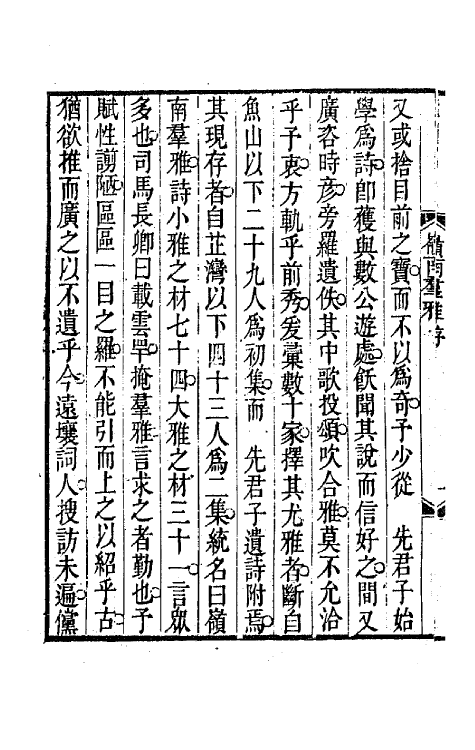 又或捨目前之寶而不以爲奇予少從　先君子始
學爲詩卽獲與數公遊處飫聞其說而信好之間又
廣咨時彦旁羅遺佚其中歌投頌吹合雅莫不允洽
乎予衷方軌乎前秀爰彙數十家擇其尤雅者斷自
魚山以下二十九人爲初集而　先君子遺詩附焉
其現存者自芷灣以下四十三人爲二集統名曰嶺
南羣雅詩小雅之材七十四大雅之材三十一言眾
多也司馬長卿曰載雲䍐掩羣雅言求之者勤也予
賦性謭陋區區一目之羅不能引而上之以紹乎古
猶欲推而廣之以不遺乎今遠壤詞人搜訪未遍儻
嶺南羣雅序